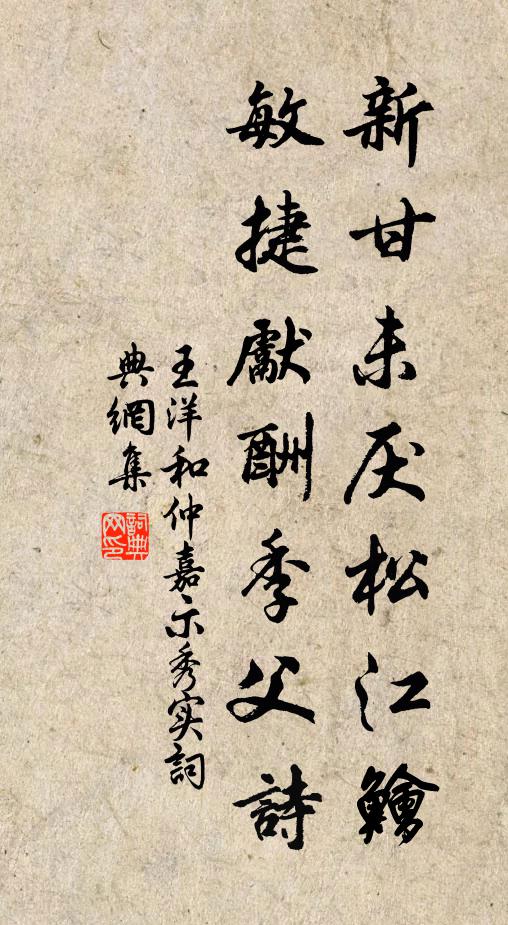 新甘未厌松江鱠
敏捷獻酬季父詩
王洋和仲嘉示秀实詞
典網集
詞典网印